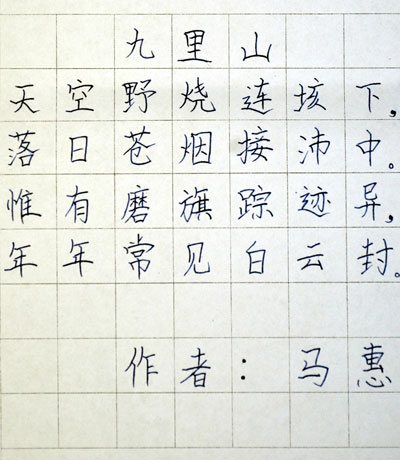 九里山
天空野烧连垓下，
落日苍烟接沛中。
惟有磨旗踪迹异，
年年常见白云封。
作者：马惠